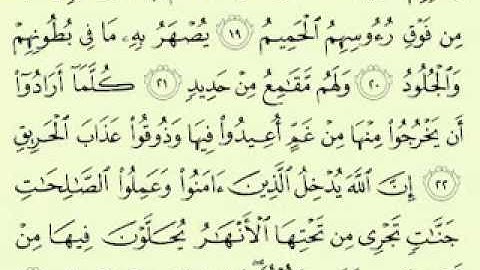 مِن فَوْقِ رُءُوسِهِمُ ٱلْحَمِيمُ ١٩ يُصْهَرُ بِهِۦ مَا فِى بُطُونِهِمْ
وَٱلْجُلُودُ ٢٠ وَلَهُم مَّقَٰمِعُ مِنْ حَدِيدٍ ٢١ كُلَّمَآ أَرَادُوٓا۟
أَن يَخْرُجُوا۟ مِنْهَا مِنْ غَمٍّ أُعِيدُوا۟ فِيهَا وَذُوقُوا۟ عَذَابَ ٱلْحَرِيقِ
٢٢ إِنَّ ٱللَّهَ يُدْخِلُ ٱلَّذِينَ ءَامَنُوا۟ وَعَمِلُوا۟ ٱلصَّٰلِحَٰتِ
جَنَّٰتٍ تَجْرِى مِن تَحْتِهَا ٱلْأَنْهَٰرُ يُحَلَّوْنَ فِيهَا مِنْ